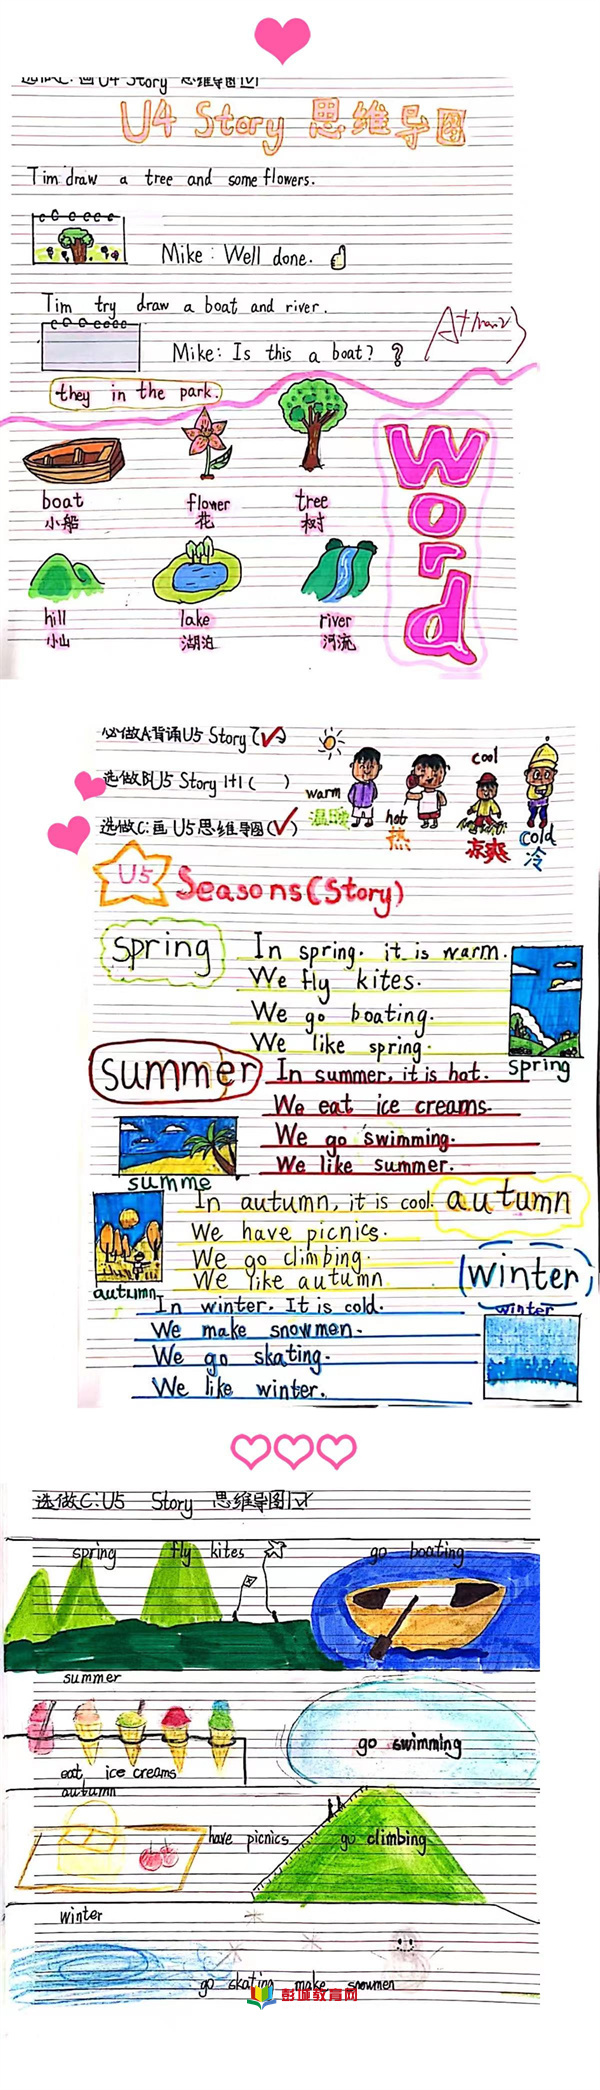 选做C:画U4 Story 思维导图
U4 Story 思维导图
Tim draw a tree and some flowers.
Mike: Well done.
Tim try draw a boat and river.
Mike: Is this a boat? ?
they in the park.
boat
小船
flower
花
tree
树
Word
hill
小山
lake
湖泊
river
河流
必做A背诵U5 Story(✓)
选做B:U5 Story 1+1( )
选做C:画U5思维导图(✓)
warm
温暖
hot
热
cool
凉爽
cold
冷
U5 Seasons(Story)
spring
In spring. it is warm.
We fly kites.
We go boating.
We like spring.
spring
summer
In summer, it is hot.
We eat ice creams.
We go swimming.
We like summer.
summe
autumn
In autumn, it is cool.
We have picnics.
We go climbing.
We like autumn
autumn
winter
In winter. It is cold.
We make snowmen.
We go skating.
We like winter.
winter
选做C:U5 Story 思维导图
spring fly kites go boating
summer
go swimming
eat ice creams
autumn
have picnics go climbing
winter
go skating make snowmen
彭城教育网